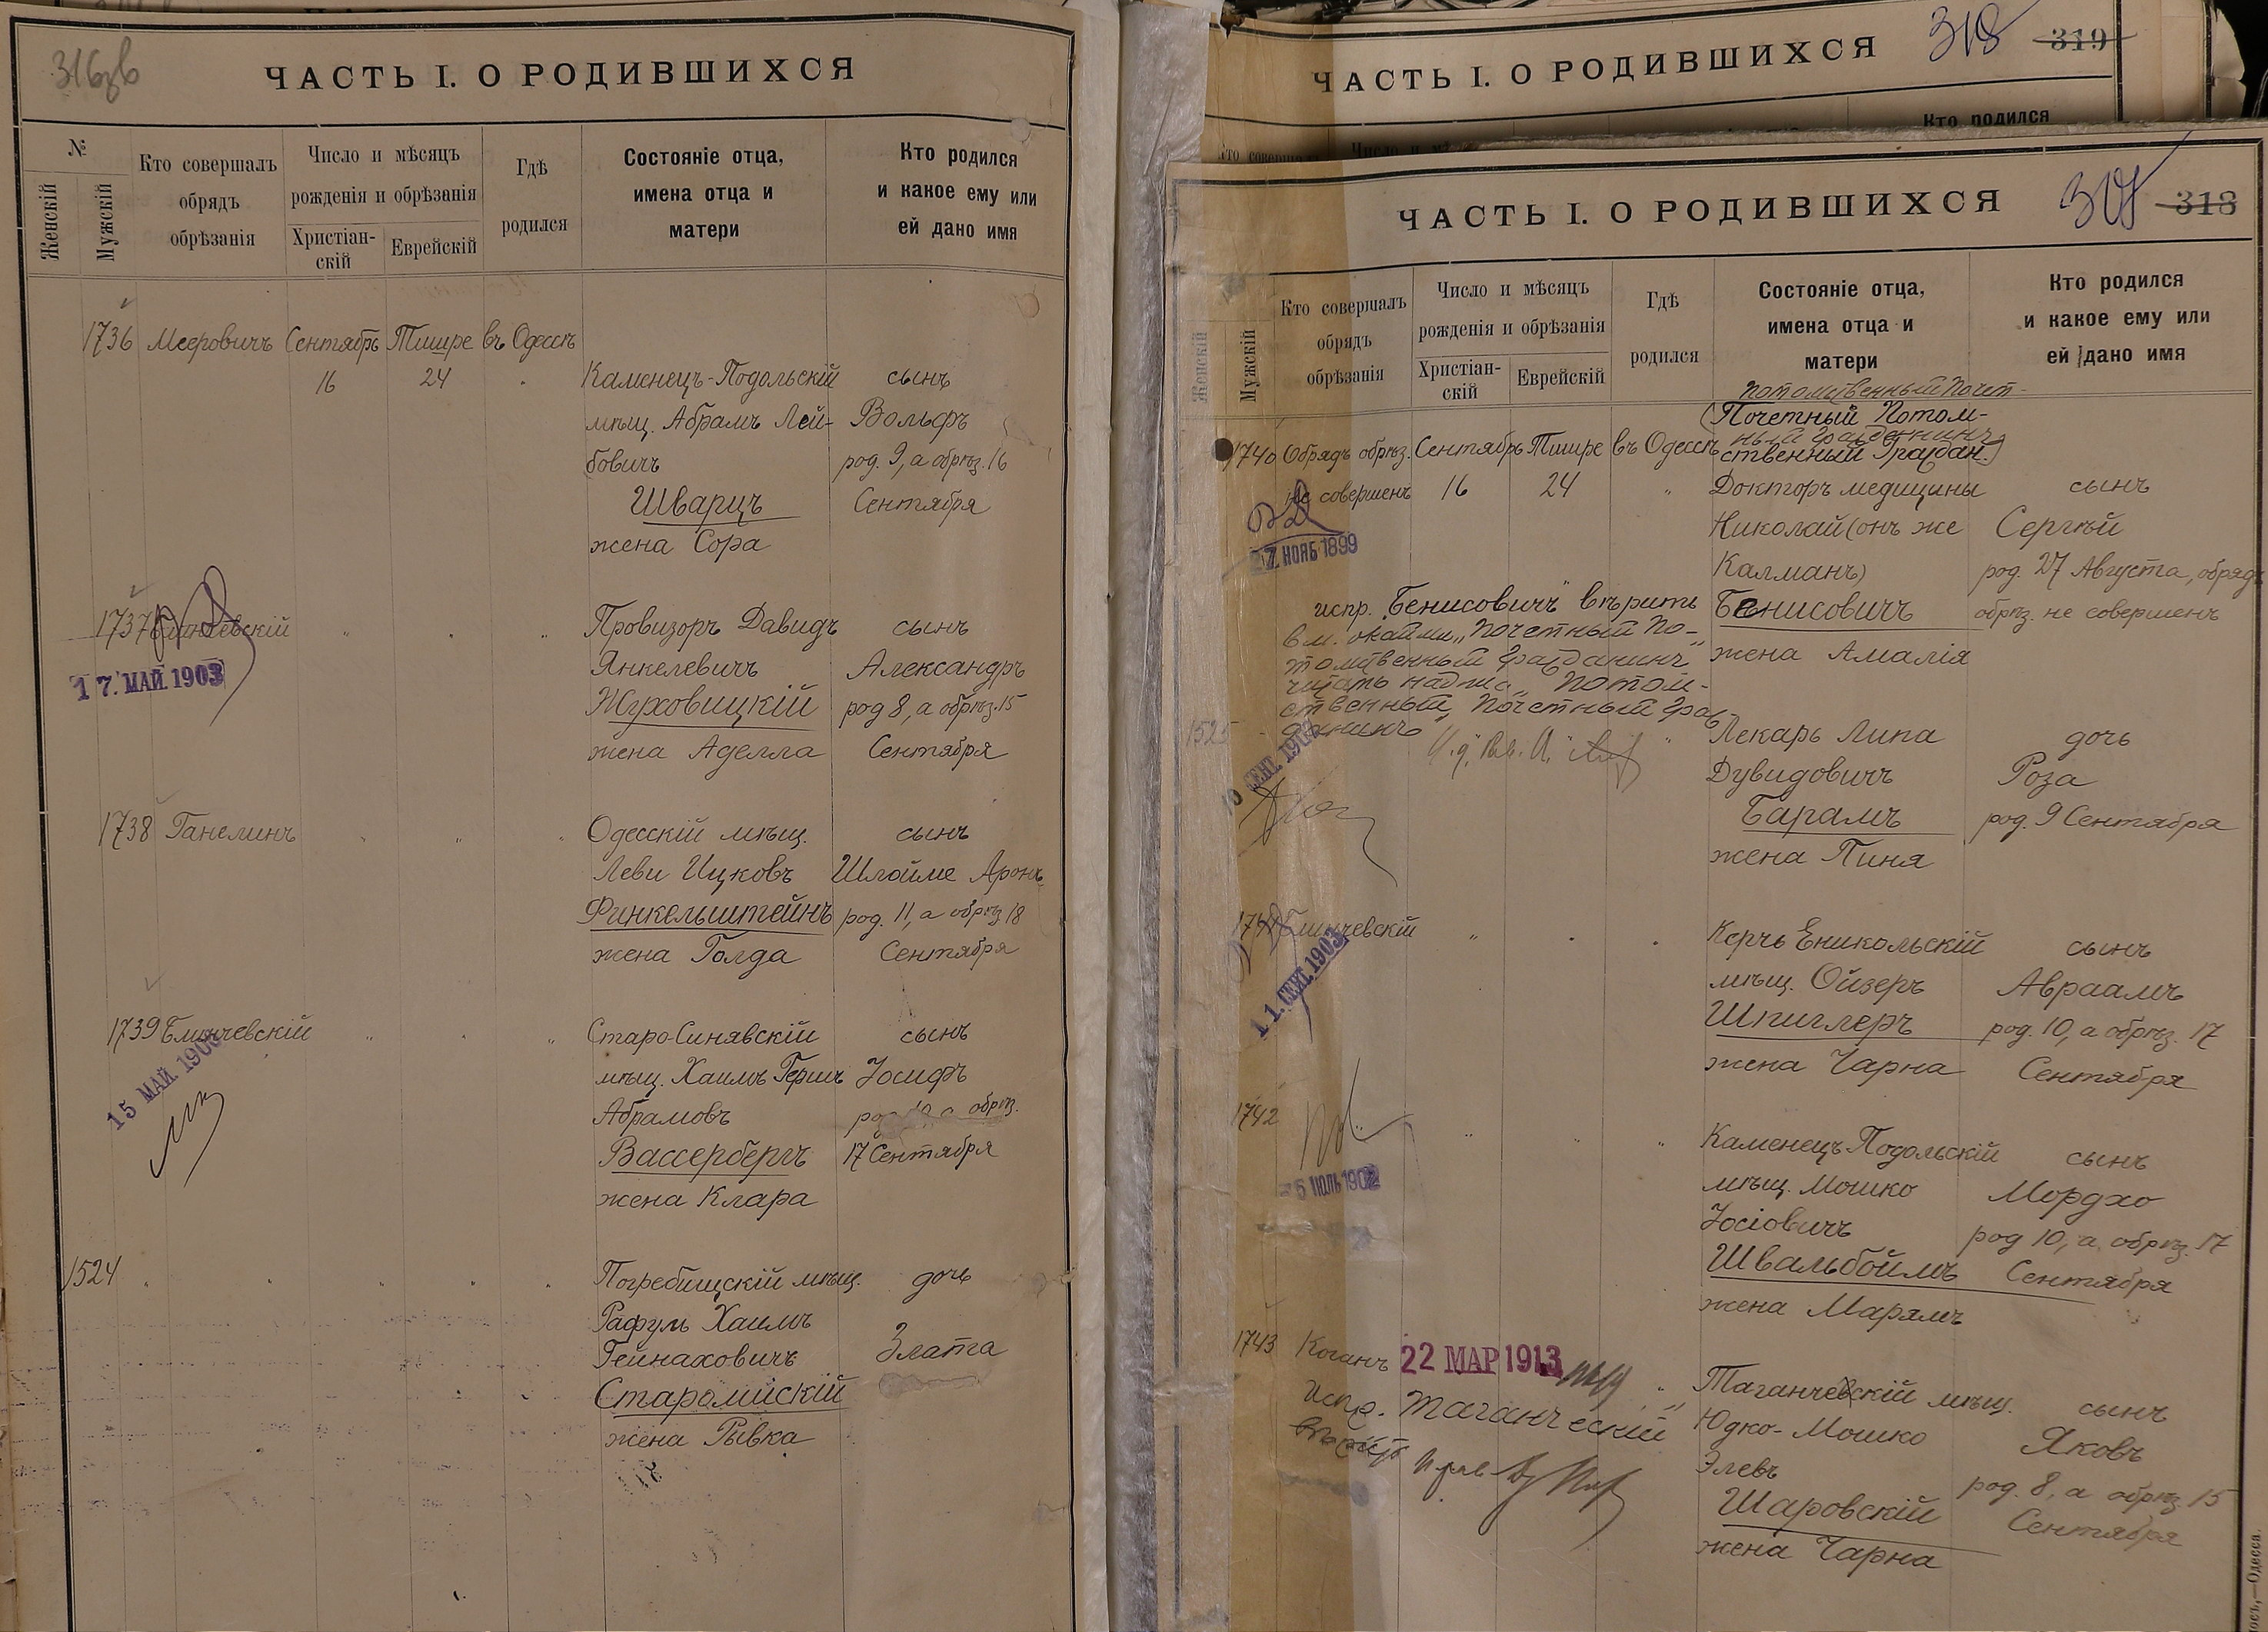 316об
ЧАСТЬ I. О РОДИВШИХСЯ
№
Женскій
Мужскій
Кто совершалъ обрядъ обрѣзанія
Число и мѣсяцъ рожденія и обрѣзанія
Христіан-скій
Еврейскій
Гдѣ родился
Состояніе отца, имена отца и матери
Кто родился и какое ему или ей дано имя
1736 Мееровичъ Сентябрь Тишре въ Одессѣ
16 24 " Каменецъ-Подольскій сынъ
мѣщ. Абрамъ Лей- Вольфъ
бовичъ род. 9, а обрѣз. 16
Шварцъ Сентября
жена Сора
1737 Блинчевскій " " " Провизоръ Давидъ сынъ
Янкелевичъ Александръ
17. МАЙ. 1903
Жуховицкій род 8, а обрѣз. 15
жена Аделла Сентября
1738 Ганелинъ " " " Одесскій мѣщ. сынъ
Леви Ицковъ Шлойме Аронъ
Финкельштейнъ род. 11, а обрѣз 18
жена Голда Сентября
1739 Блинчевскій " " " Старо-Синявскій сынъ
мѣщ. Хаимъ Гершъ Іосифъ
15 МАЙ. 190
Абрамовъ род 10 а обрѣз.
Вассербергъ 17 Сентября
жена Клара
1524 " " " " " Погребищскій мѣщ. дочь
Рафуль Хаимъ
Гейнаховичъ Злата
Старомискій
жена Рывка
ЧАСТЬ I. О РОДИВШИХСЯ
318 319
Кто родился
ЧАСТЬ I. О РОДИВШИХСЯ
318
Женскій
Мужскій
Кто совершалъ обрядъ обрѣзанія
Число и мѣсяцъ рожденія и обрѣзанія
Христіан-скій
Еврейскій
Гдѣ родился
Состояніе отца, имена отца и матери
Кто родился и какое ему или ей дано имя
Потомственный Почет-
(Почетный Потом-
ный Гражданинъ
ственный Граждан.)
1740 Обрядъ обрѣз. Сентябрь Тишре въ Одессѣ
не совершенъ 16 24 " Докторъ медицины сынъ
Николай (онъ же Сергѣй
27 НОЯБ 1899
Калманъ) род. 27 Августа, обрядъ
Бенисовичъ обрѣз. не совершенъ
жена Амалія
испр. "Бенисовичъ" вѣрить
вм. "Почетный По-
томственный Гражданинъ"
читать надпис. "Потом-
ственный Почетный Граж-
данинъ"
1525 " Лекарь Липа дочь
Дувидовичъ Роза
10 СЕНТ. 190
Барамъ род. 9 Сентября
жена Пиня
1741 Блинчевскій " " " Керчь Еникольскій сынъ
мѣщ. Ойзеръ Авраамъ
11. СЕНТ. 1903
Шпиглеръ род. 10, а обрѣз. 17
жена Чарна Сентября
1742 " " " " Каменецъ Подольскій сынъ
мѣщ. Мошко Мордхо
5 ІЮЛЬ 1902
Іосіовичъ род 10, а обрѣз. 17
Швальбоймъ Сентября
жена Марямъ
1743 Коганъ 22 МАР 1913 " Таганчевскій мѣщ. сынъ
Испр. Таганческій Юдко-Мошко Яковъ
вѣрить Элевъ род. 8, а обрѣз. 15
Шаровскій Сентября
жена Чарна